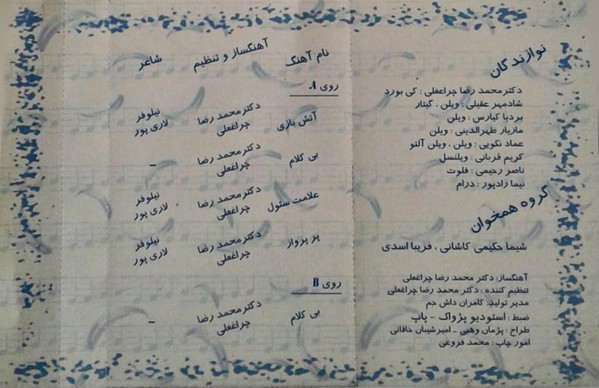 نوازندگان
دکتر محمد رضا چراغعلی : کی بورد
شادمهر عقیلی : ویلن ، گیتار
بردیا کیارس : ویلن
مازیار ظهیرالدینی : ویلن
عماد نکویی : ویلن ، ویلن آلتو
کریم قربانی : ویلنسل
ناصر رحیمی : فلوت
نیما رادپور : درام
گروه همخوان
شیما حکیمی کاشانی ، فریبا اسدی
آهنگساز: دکتر محمد رضا چراغعلی
تنظیم کننده : دکتر محمد رضا چراغعلی
مدیر تولید: کامران داش جم
ضبط : استودیو پژواک - پاپ
طراح : پژمان وهبی - امیرشیبان خاقانی
امور چاپ : محمد فروغی
نام آهنگ آهنگساز و تنظیم شاعر
روی A
آتش بازی دکتر محمد رضا چراغعلی نیلوفر لاری پور
بی کلام دکتر محمد رضا چراغعلی -
علامت سئول دکتر محمد رضا چراغعلی نیلوفر لاری پور
پر پرواز دکتر محمد رضا چراغعلی نیلوفر لاری پور
روی B
بی کلام دکتر محمد رضا چراغعلی -